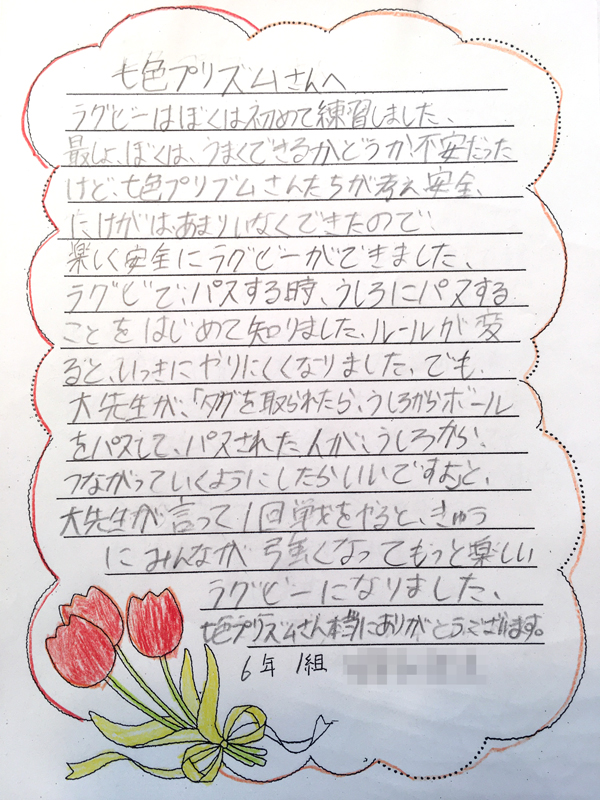 七色プリズムさんへ
ラグビーはぼくは初めて練習しました、
最しょ、ぼくは、うまくできるかどうか、不安だった
けど、七色プリズムさんたちが考え安全、
にけがは、あまりいなくできたので、
楽しく安全にラグビーができました、
ラグビで、パスする時、うしろにパスする
ことをはじめて知りました、ルールが変
ると、いっきにやりにくくなりました、でも、
大先生が、「タグを取られたら、うしろからボール
をパスして、パスされた人が、うしろから、
つながっていくようにしたらいいですよ」と、
大先生が言って1回戦をやると、きゅう
にみんなが強くなってもっと楽しい
ラグビーになりました、
七色プリズムさん本当にありがとうございます。
6年 1組